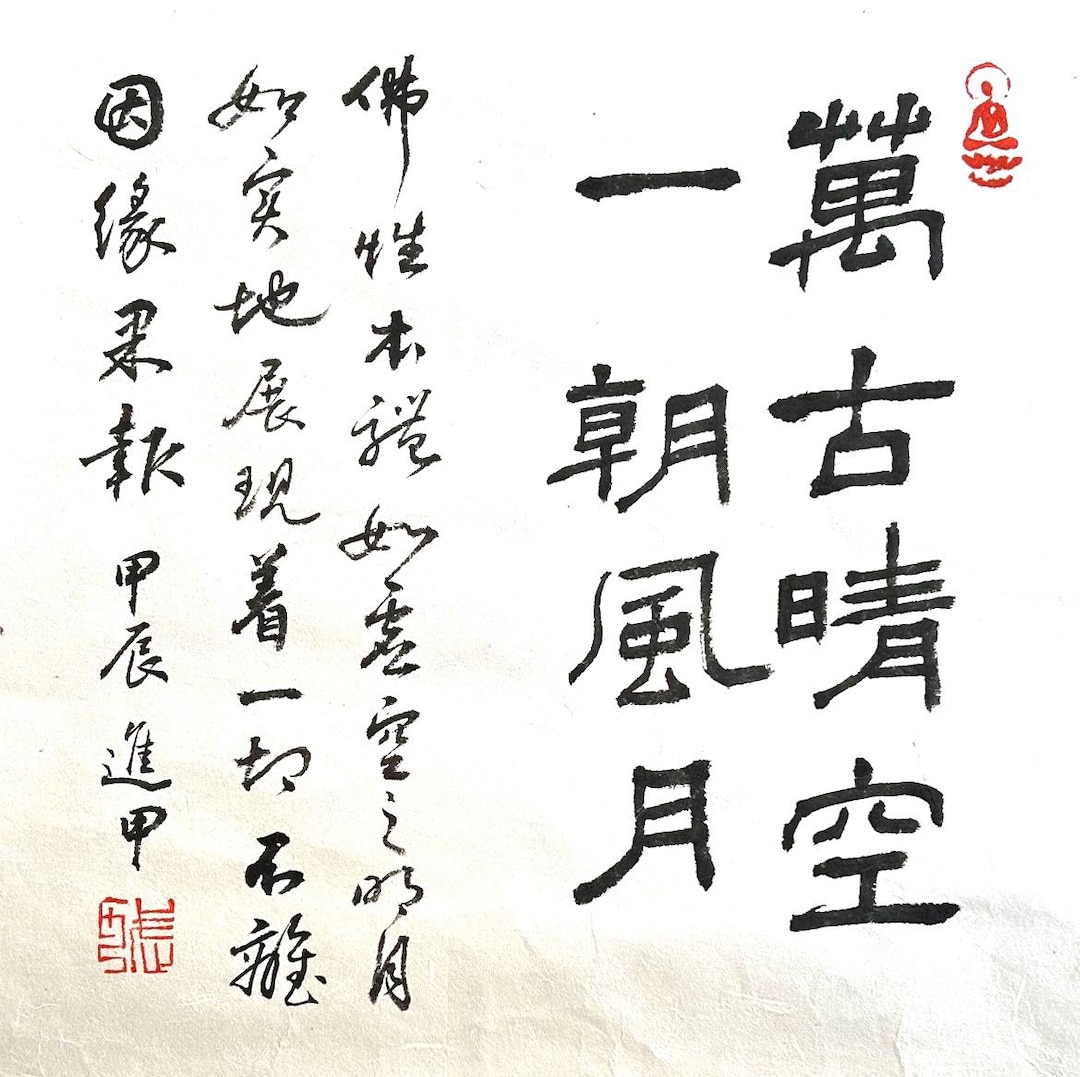 萬古晴空
一朝風月
佛性本體如虛空之明月
如实地展現着一切不離
因緣果報 甲辰 進甲